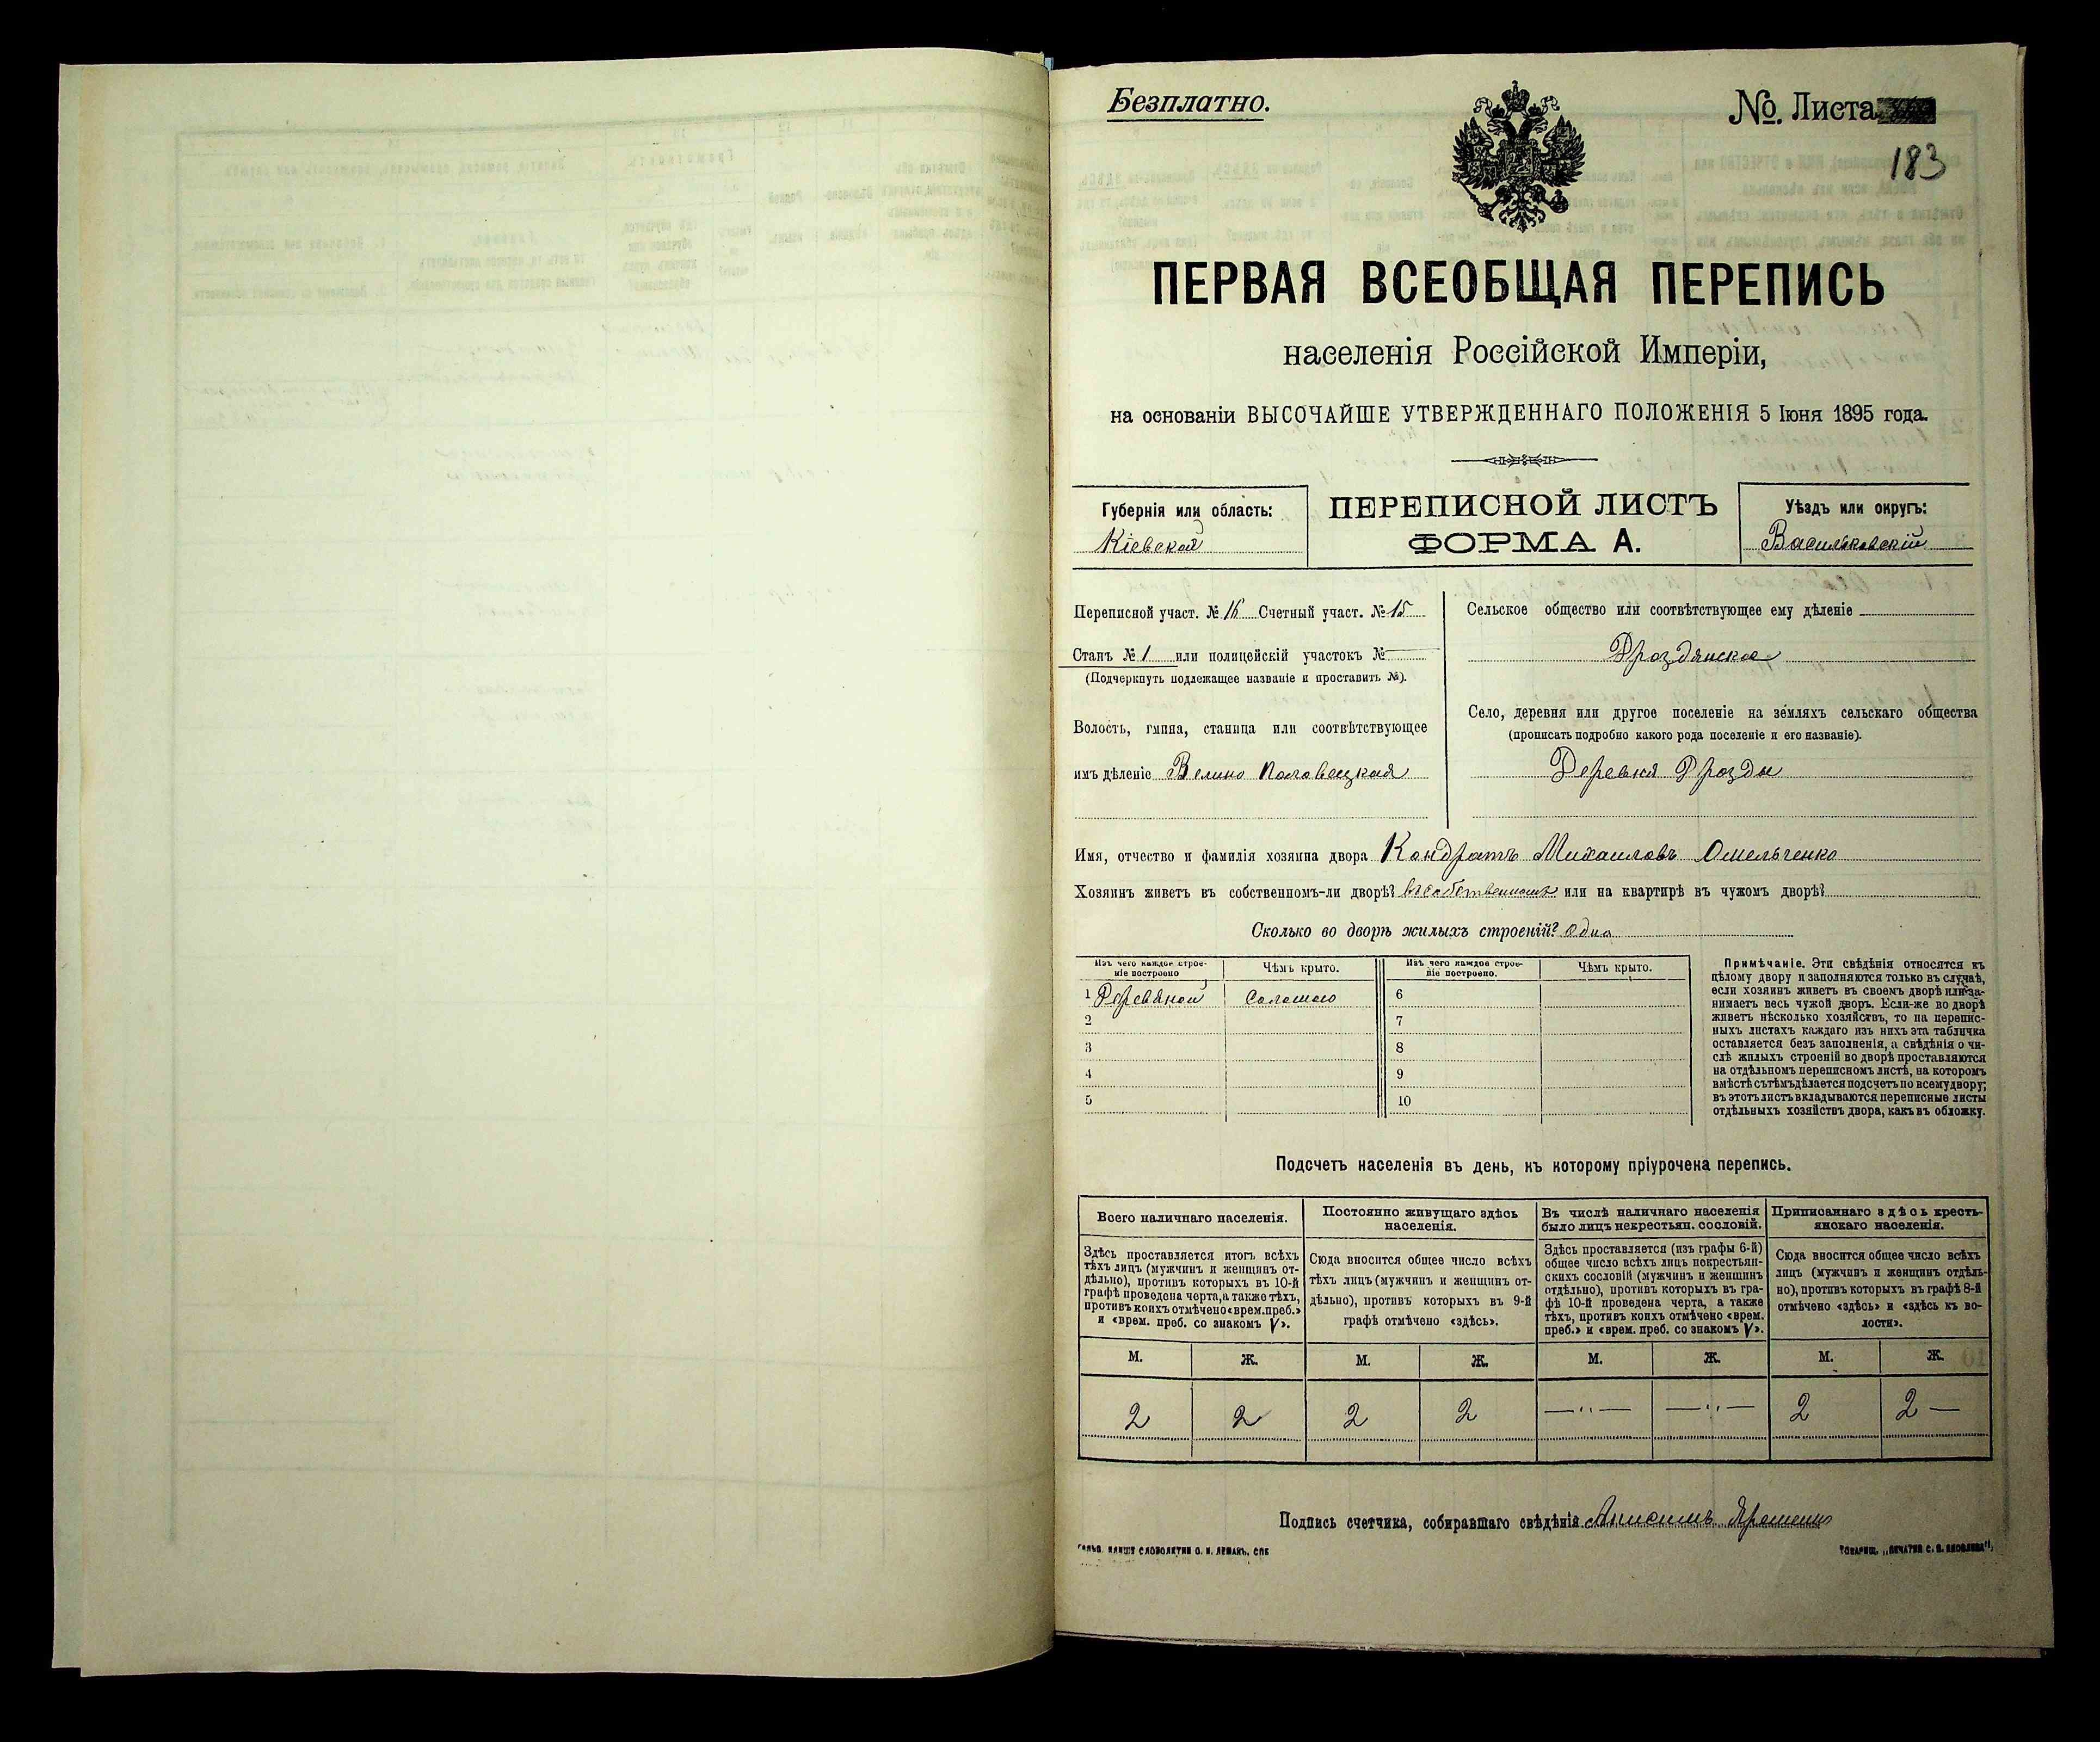 Безплатно.
№. Листа
183
ПЕРВАЯ ВСЕОБЩАЯ ПЕРЕПИСЬ
населенія Россійской Имперіи,
на основаніи ВЫСОЧАЙШЕ УТВЕРЖДЕННАГО ПОЛОЖЕНІЯ 5 Іюня 1895 года.
Губернія или область:
Кіевская
ПЕРЕПИСНОЙ ЛИСТЪ
ФОРМА А.
Уѣздъ или округъ:
Васильковскій
Переписной участ. № 16 Счетный участ. № 15
Станъ № 1 или полицейскій участокъ №
(Подчеркнуть подлежащее названіе и проставить №).
Волость, гмина, станица или соотвѣтствующее
имъ дѣленіе Велико Половецкая
Сельское общество или соотвѣтствующее ему дѣленіе
Дроздянское
Село, деревня или другое поселеніе на земляхъ сельскаго общества
(прописать подробно какого рода поселеніе и его названіе).
Деревня Дрозды
Имя, отчество и фамилія хозяина двора Кондратъ Михаиловъ Омельченко
Хозяинъ живетъ въ собственномъ-ли дворѣ? въ собственномъ или на квартирѣ въ чужомъ дворѣ?
Сколько во дворѣ жилыхъ строеній? одно
Изъ чего каждое строе-
ніе построено
Чѣмъ крыто.
Изъ чего каждое строе-
ніе построено.
Чѣмъ крыто.
1 Деревяной Соломою 6
2 7
3 8
4 9
5 10
Примѣчаніе. Эти свѣдѣнія относятся къ
цѣлому двору и заполняются только въ случаѣ,
если хозяинъ живетъ въ своемъ дворѣ или за-
нимаетъ весь чужой дворъ. Если-же во дворѣ
живетъ нѣсколько хозяйствъ, то на перепис-
ныхъ листахъ каждаго изъ нихъ эта табличка
оставляется безъ заполненія, а свѣдѣнія о чи-
слѣ жилыхъ строеній во дворѣ проставляются
на отдѣльномъ переписномъ листѣ, на которомъ
вмѣстѣ съ тѣмъ дѣлается подсчетъ по всему двору;
въ этотъ листъ вкладываются переписные листы
отдѣльныхъ хозяйствъ двора, какъ въ обложку.
Подсчетъ населенія въ день, къ которому пріурочена перепись.
Всего наличнаго населенія.
Здѣсь проставляется итогъ всѣхъ
тѣхъ лицъ (мужчинъ и женщинъ от-
дѣльно), противъ которыхъ въ 10-й
графѣ проведена черта, а также тѣхъ,
противъ коихъ отмѣчено «врем. преб.»
и «врем. преб. со знакомъ V».
Постоянно живущаго здѣсь
населенія.
Сюда вносится общее число всѣхъ
тѣхъ лицъ (мужчинъ и женщинъ от-
дѣльно), противъ которыхъ въ 9-й
графѣ отмѣчено «здѣсь».
Въ числѣ наличнаго населенія
было лицъ некрестьян. сословій.
Здѣсь проставляется (изъ графы 6-й)
общее число всѣхъ лицъ некрестьян-
скихъ сословій (мужчинъ и женщинъ
отдѣльно), противъ которыхъ въ гра-
фѣ 10-й проведена черта, а также
тѣхъ, противъ коихъ отмѣчено «врем.
преб.» и «врем. преб. со знакомъ V».
Приписаннаго здѣсь кресть-
янскаго населенія.
Сюда вносится общее число всѣхъ
лицъ (мужчинъ и женщинъ отдѣль-
но), противъ которыхъ въ графѣ 8-й
отмѣчено «здѣсь» и «здѣсь къ во-
лости».
М. Ж. М. Ж. М. Ж. М. Ж.
2 2 2 2 —"— —"— 2 2 —
Подпись счетчика, собиравшаго свѣдѣнія Анисимъ